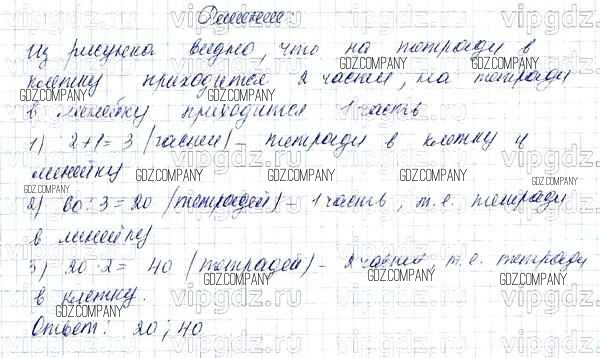 Решение:
Из рисунка видно, что на тетради в
клетку приходится 2 части, на тетради
в линейку приходится 1 часть
1) 2+1=3 (частей) – тетради в клетку и
линейку
2) 60:3=20 (тетрадей) – 1 часть, т.е. тетради
в линейку
3) 20·2= 40 (тетрадей) – 2 части, т.е. тетради
в клетку.
Ответ: 20; 40
vipgdz.ru
GDZ.COMPANY